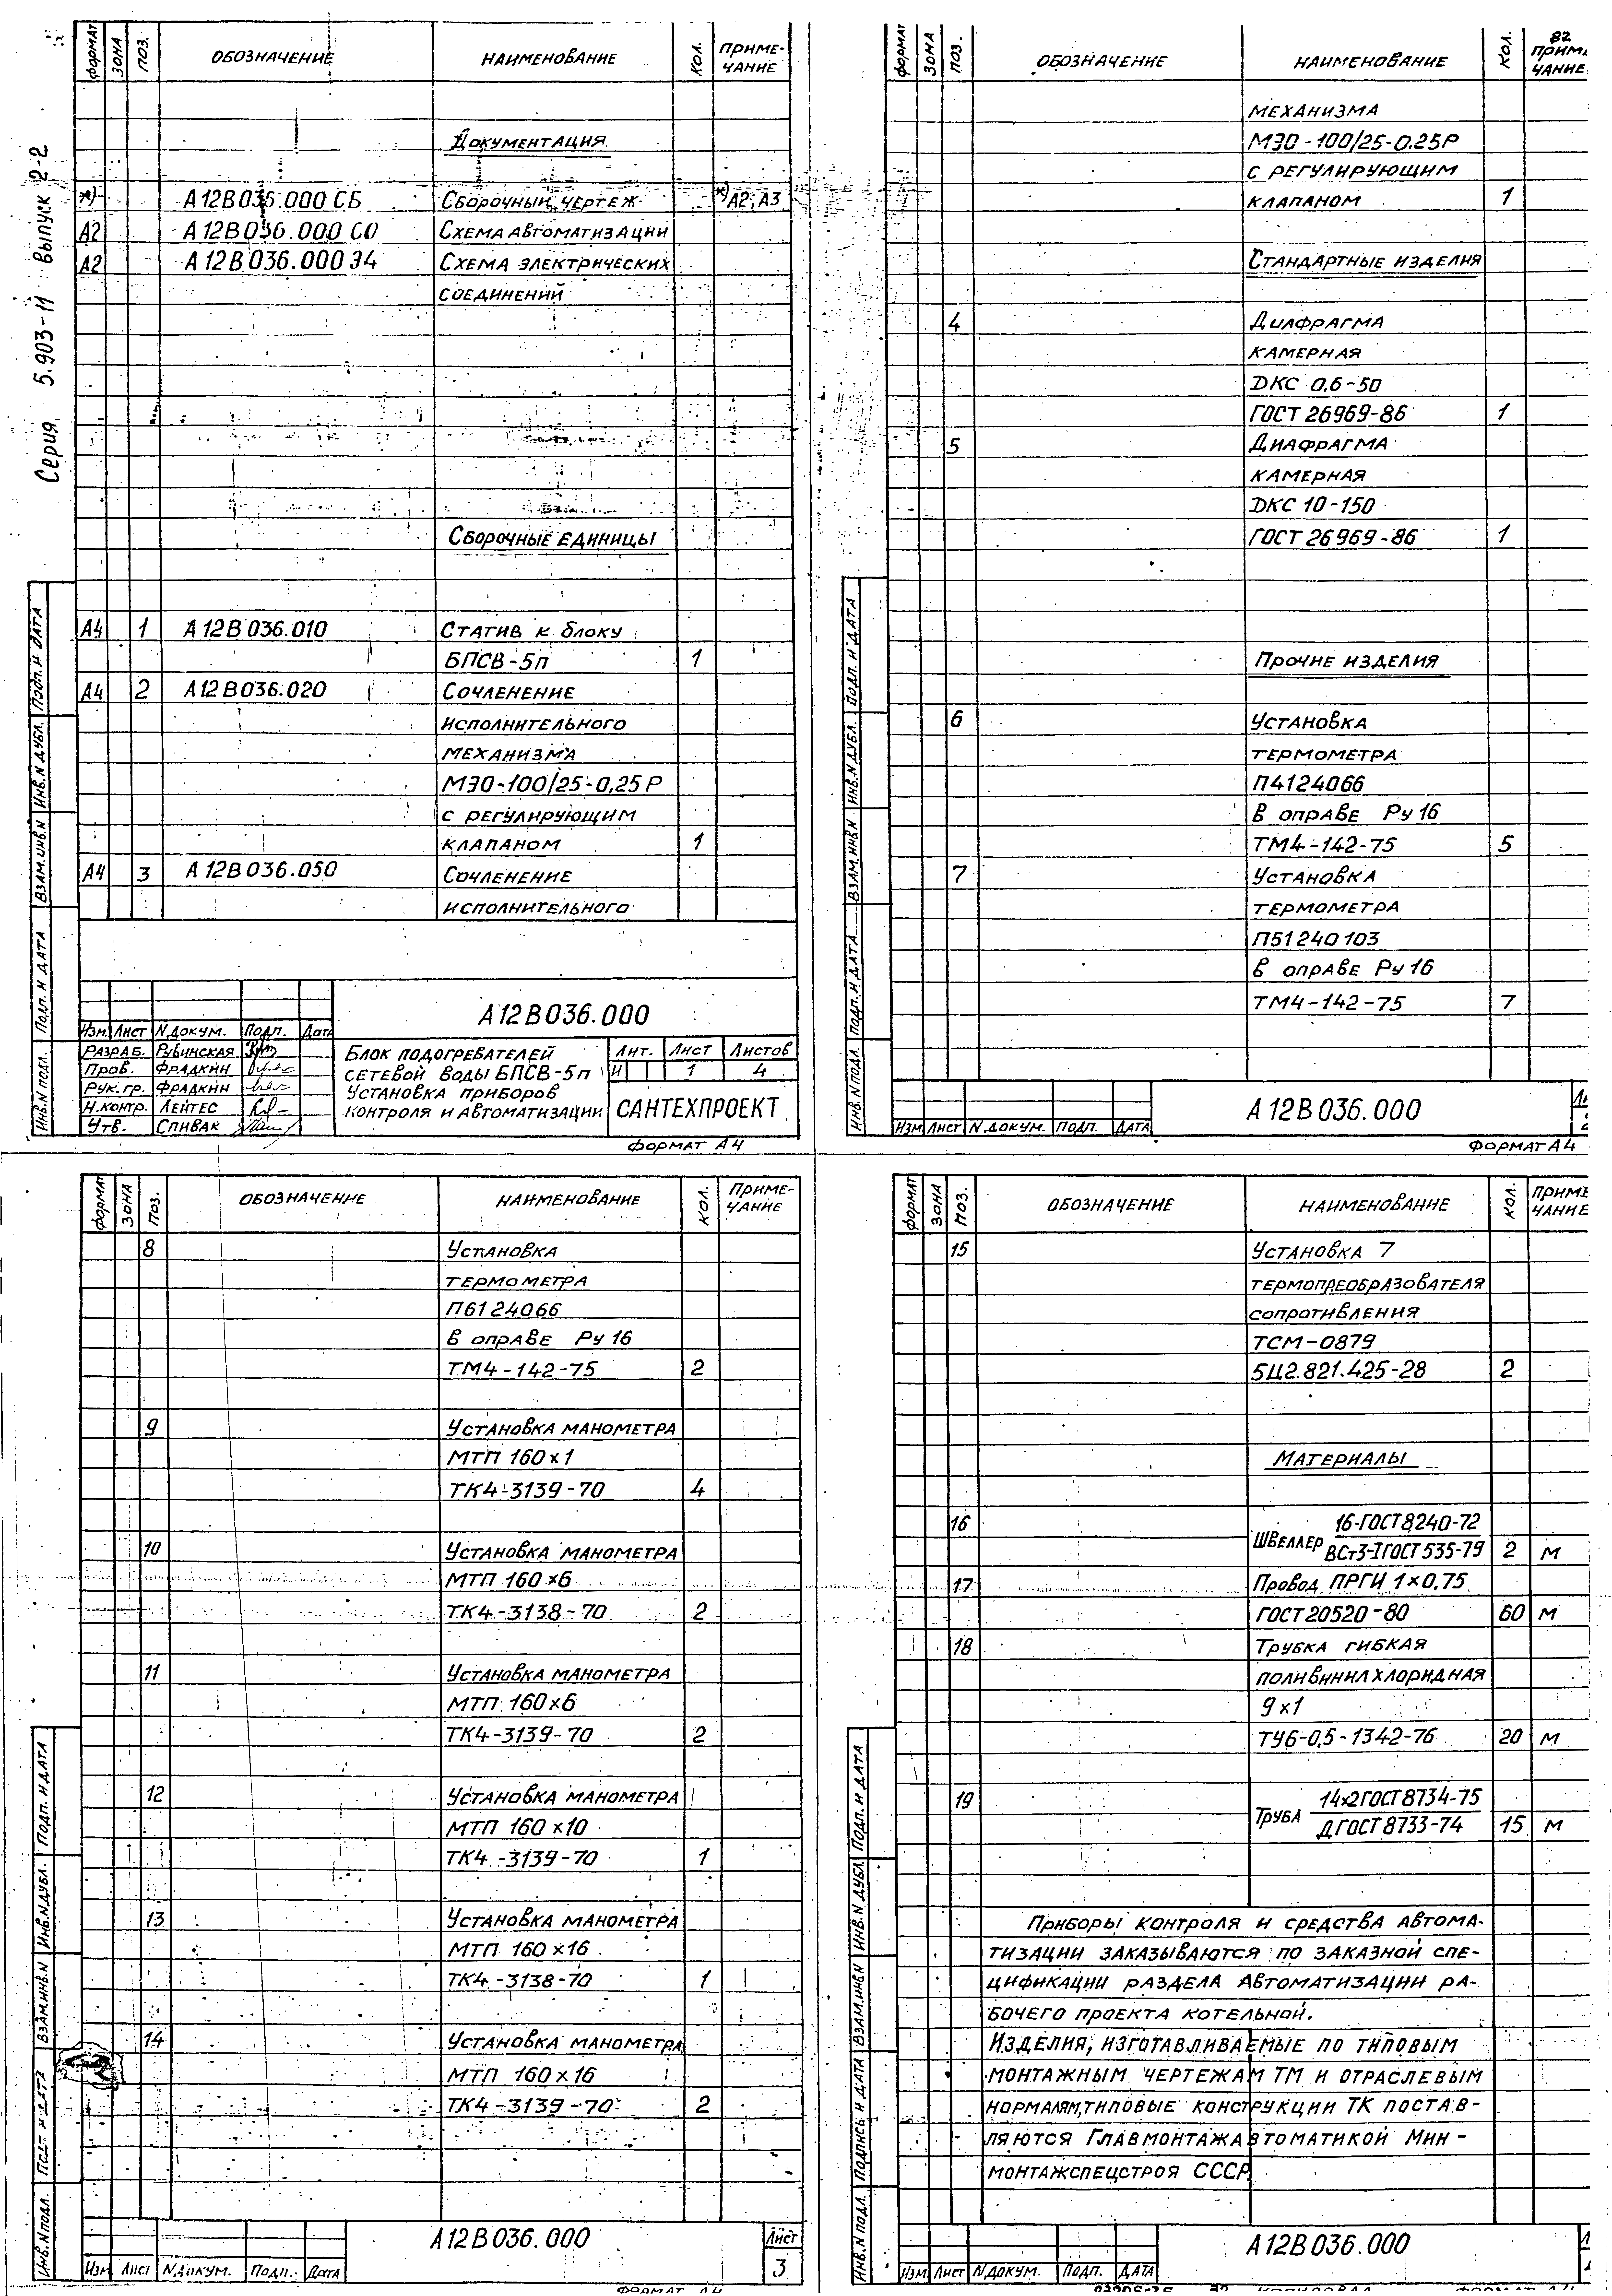 Серия 5.903-11 выпуск 2-2
ФОРМАТ ЗОНА ПОЗ. ОБОЗНАЧЕНИЕ НАИМЕНОВАНИЕ КОЛ. ПРИМЕ-
ЧАНИЕ
Документация
*) А12В036.000 СБ Сборочный чертеж *) А2; А3
А2 А12В036.000 СО Схема автоматизации
А2 А12В036.000 Э4 Схема электрических
соединений
Сборочные единицы
А4 1 А12В036.010 Статив к блоку
БПСВ-5п 1
А4 2 А12В036.020 Сочленение
исполнительного
механизма
МЭО-100/25-0,25Р
с регулирующим
клапаном 1
А4 3 А12В036.050 Сочленение
исполнительного
А12В036.000
Изм. Лист N докум. Подп. Дата
Разраб. Рубинская
Пров. Фрадкин
Рук. гр. Фрадкин
Н.контр. Лейтес
Утв. Спивак
Блок подогревателей
сетевой воды БПСВ-5п
Установка приборов
контроля и автоматизации
Лит. Лист Листов
И 1 4
САНТЕХПРОЕКТ
Инв.N подл. Подп. и дата Взам.инв.N Инв.N дубл. Подп. и дата
ФОРМАТ А4
82
ФОРМАТ ЗОНА ПОЗ. ОБОЗНАЧЕНИЕ НАИМЕНОВАНИЕ КОЛ. ПРИМЕ
ЧАНИЕ
механизма
МЭО-100/25-0.25Р
с регулирующим
клапаном 1
Стандартные изделия
4 Диафрагма
камерная
ДКС 0,6-50
ГОСТ 26969-86 1
5 Диафрагма
камерная
ДКС 10-150
ГОСТ 26969-86 1
Прочие изделия
6 Установка
термометра
П4124066
в оправе Ру 16
ТМ4-142-75 5
7 Установка
термометра
П51240103
в оправе Ру 16
ТМ4-142-75 7
А12В036.000
Изм Лист N докум. Подп. Дата
Инв.N подл. Подп. и дата Взам.инв.N Инв.N дубл. Подп. и дата
ФОРМАТ А4
ФОРМАТ ЗОНА ПОЗ. ОБОЗНАЧЕНИЕ НАИМЕНОВАНИЕ КОЛ. ПРИМЕ-
ЧАНИЕ
8 Установка
термометра
П6124066
в оправе Ру 16
ТМ4-142-75 2
9 Установка манометра
МТП 160х1
ТК4-3139-70 4
10 Установка манометра
МТП 160х6
ТК4-3138-70 2
11 Установка манометра
МТП 160х6
ТК4-3139-70 2
12 Установка манометра
МТП 160х10
ТК4-3139-70 1
13 Установка манометра
МТП 160х16
ТК4-3138-70 1
14 Установка манометра
МТП 160х16
ТК4-3139-70 2
А12В036.000 Лист
3
Изм Лист N докум. Подп. Дата
Инв.N подл. Подп. и дата Взам.инв.N Инв.N дубл. Подп. и дата
ФОРМАТ А4
ФОРМАТ ЗОНА ПОЗ. ОБОЗНАЧЕНИЕ НАИМЕНОВАНИЕ КОЛ. ПРИМЕ
ЧАНИЕ
15 Установка 7
термопреобразователя
сопротивления
ТСМ-0879
5Ц2.821.425-28 2
Материалы
16 Швеллер 16-ГОСТ 8240-72
ВСт3-I ГОСТ 535-79 2 м
17 Провод ПРГИ 1х0,75
ГОСТ 20520-80 60 м
18 Трубка гибкая
поливинилхлоридная
9х1
ТУ6-0,5-1342-76 20 м
19 Труба 14х2 ГОСТ 8734-75
Д ГОСТ 8733-74 15 м
Приборы контроля и средства автома-
тизации заказываются по заказной спе-
цификации раздела автоматизации ра-
бочего проекта котельной.
Изделия, изготавливаемые по типовым
монтажным чертежам ТМ и отраслевым
нормалям, типовые конструкции ТК постав-
ляются Главмонтажавтоматикой Мин-
монтажспецстроя СССР.
А12В036.000
Изм Лист N докум. Подп. Дата
Инв.N подл. Подпись и дата Взам.инв.N Инв.N дубл. Подп. и дата